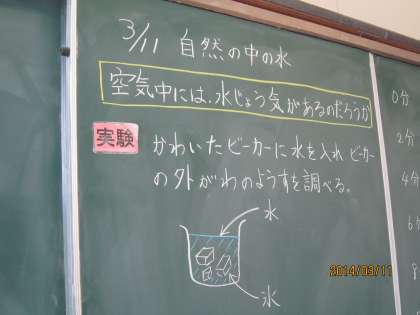 3/11 自然の中の水
空気中には、水じょう気があるのだろうか
実験
かわいたビーカーに水を入れ ビーカー
の外がわのようすを調べる。
水
氷
0分
2分
4分
6
8
2014/03/11